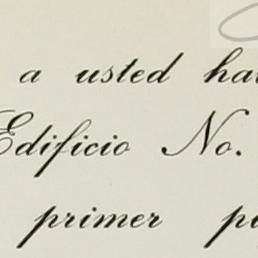 a usted ha
Edificio No.
primer p